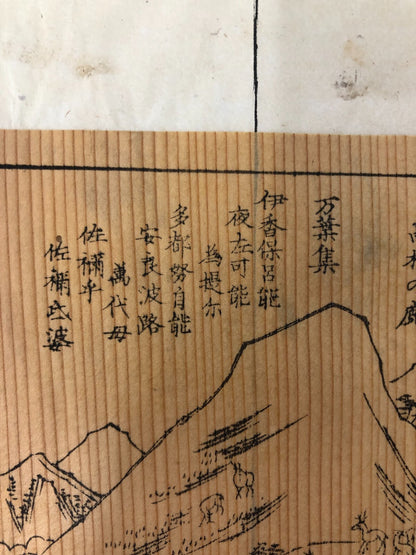 万葉集
伊香保呂能
夜左可能
為提尓
多都努自能
安良波路
萬代母
佐禰乎
佐禰弖婆